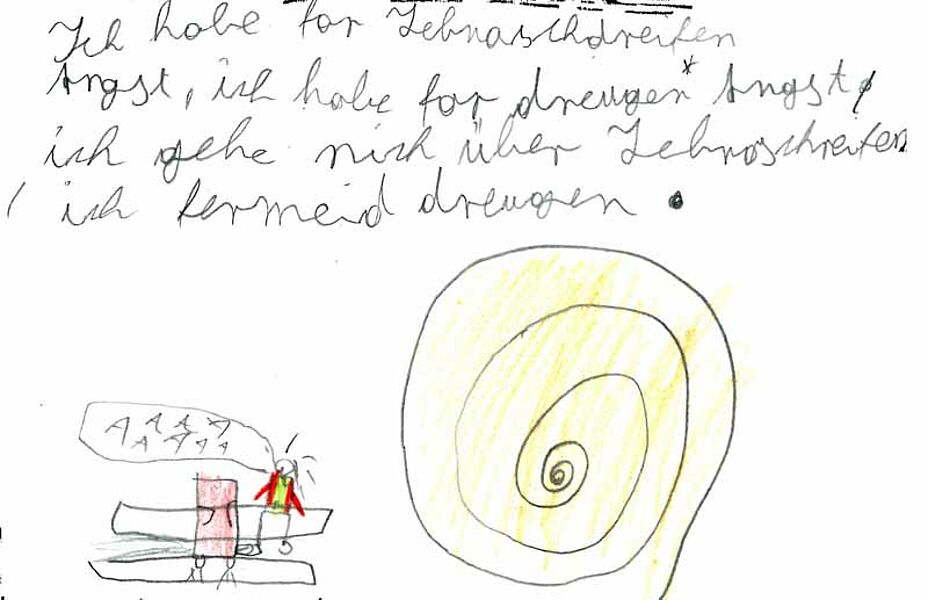 Ich habe for Zebraschdreifen
Angst, ich habe for dreugen* Angst,
ich gehe nich über Zebraschreifen
, ich fermeid dreugen.
AAAA
AAAA